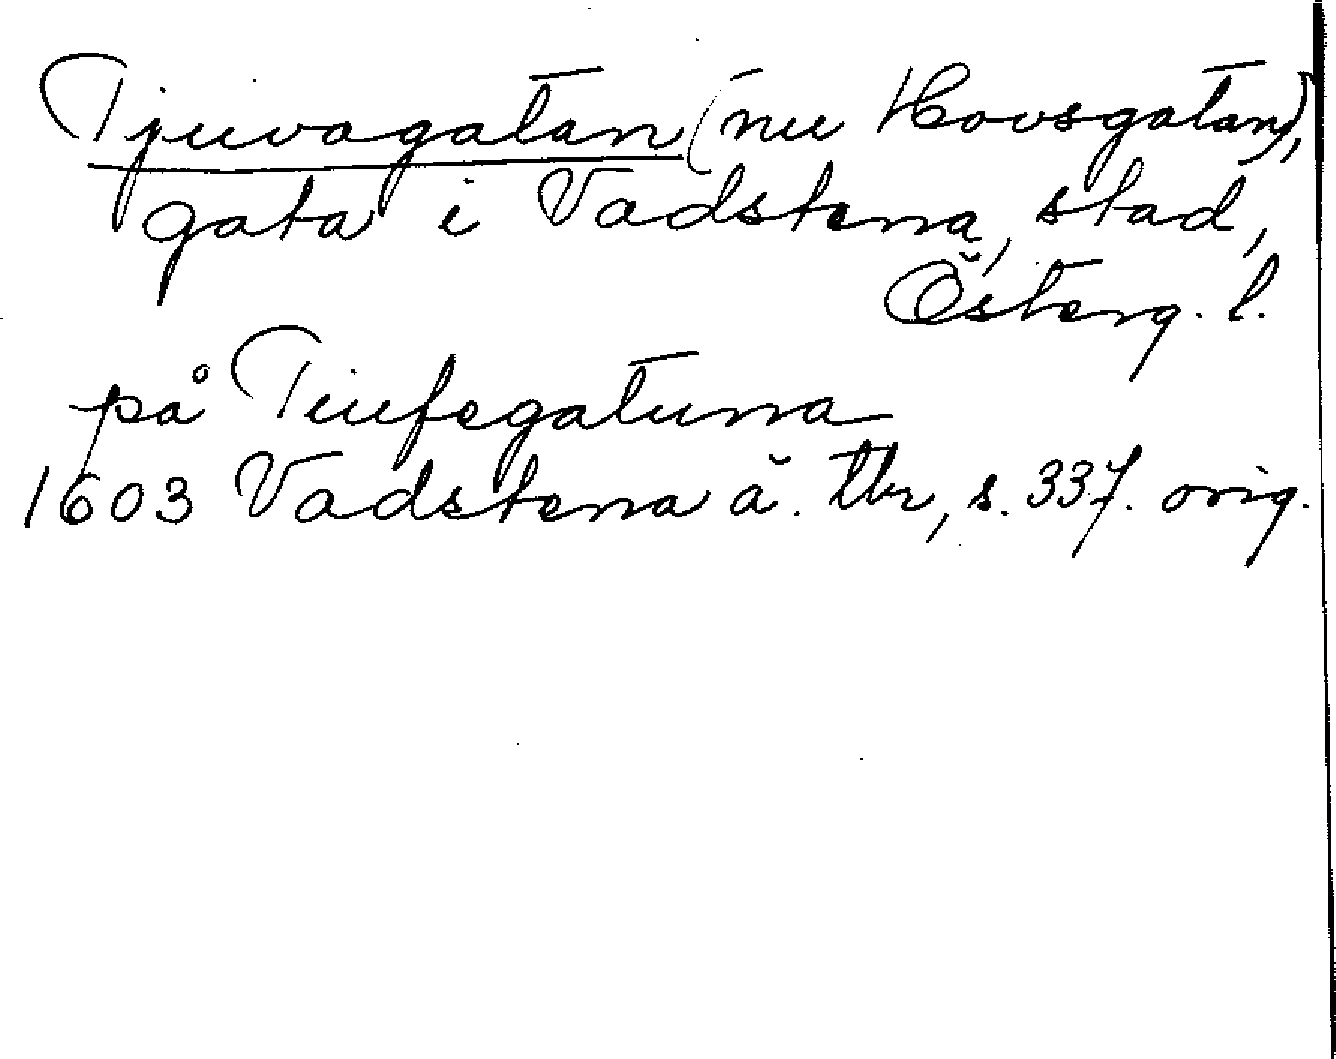 Tjuvagatan (nu Hovsgatan),
gata i Vadstena, stad,
Österg. l.
på Tiufegatuna
1603 Vadstena ä. tbr, s. 337. orig.